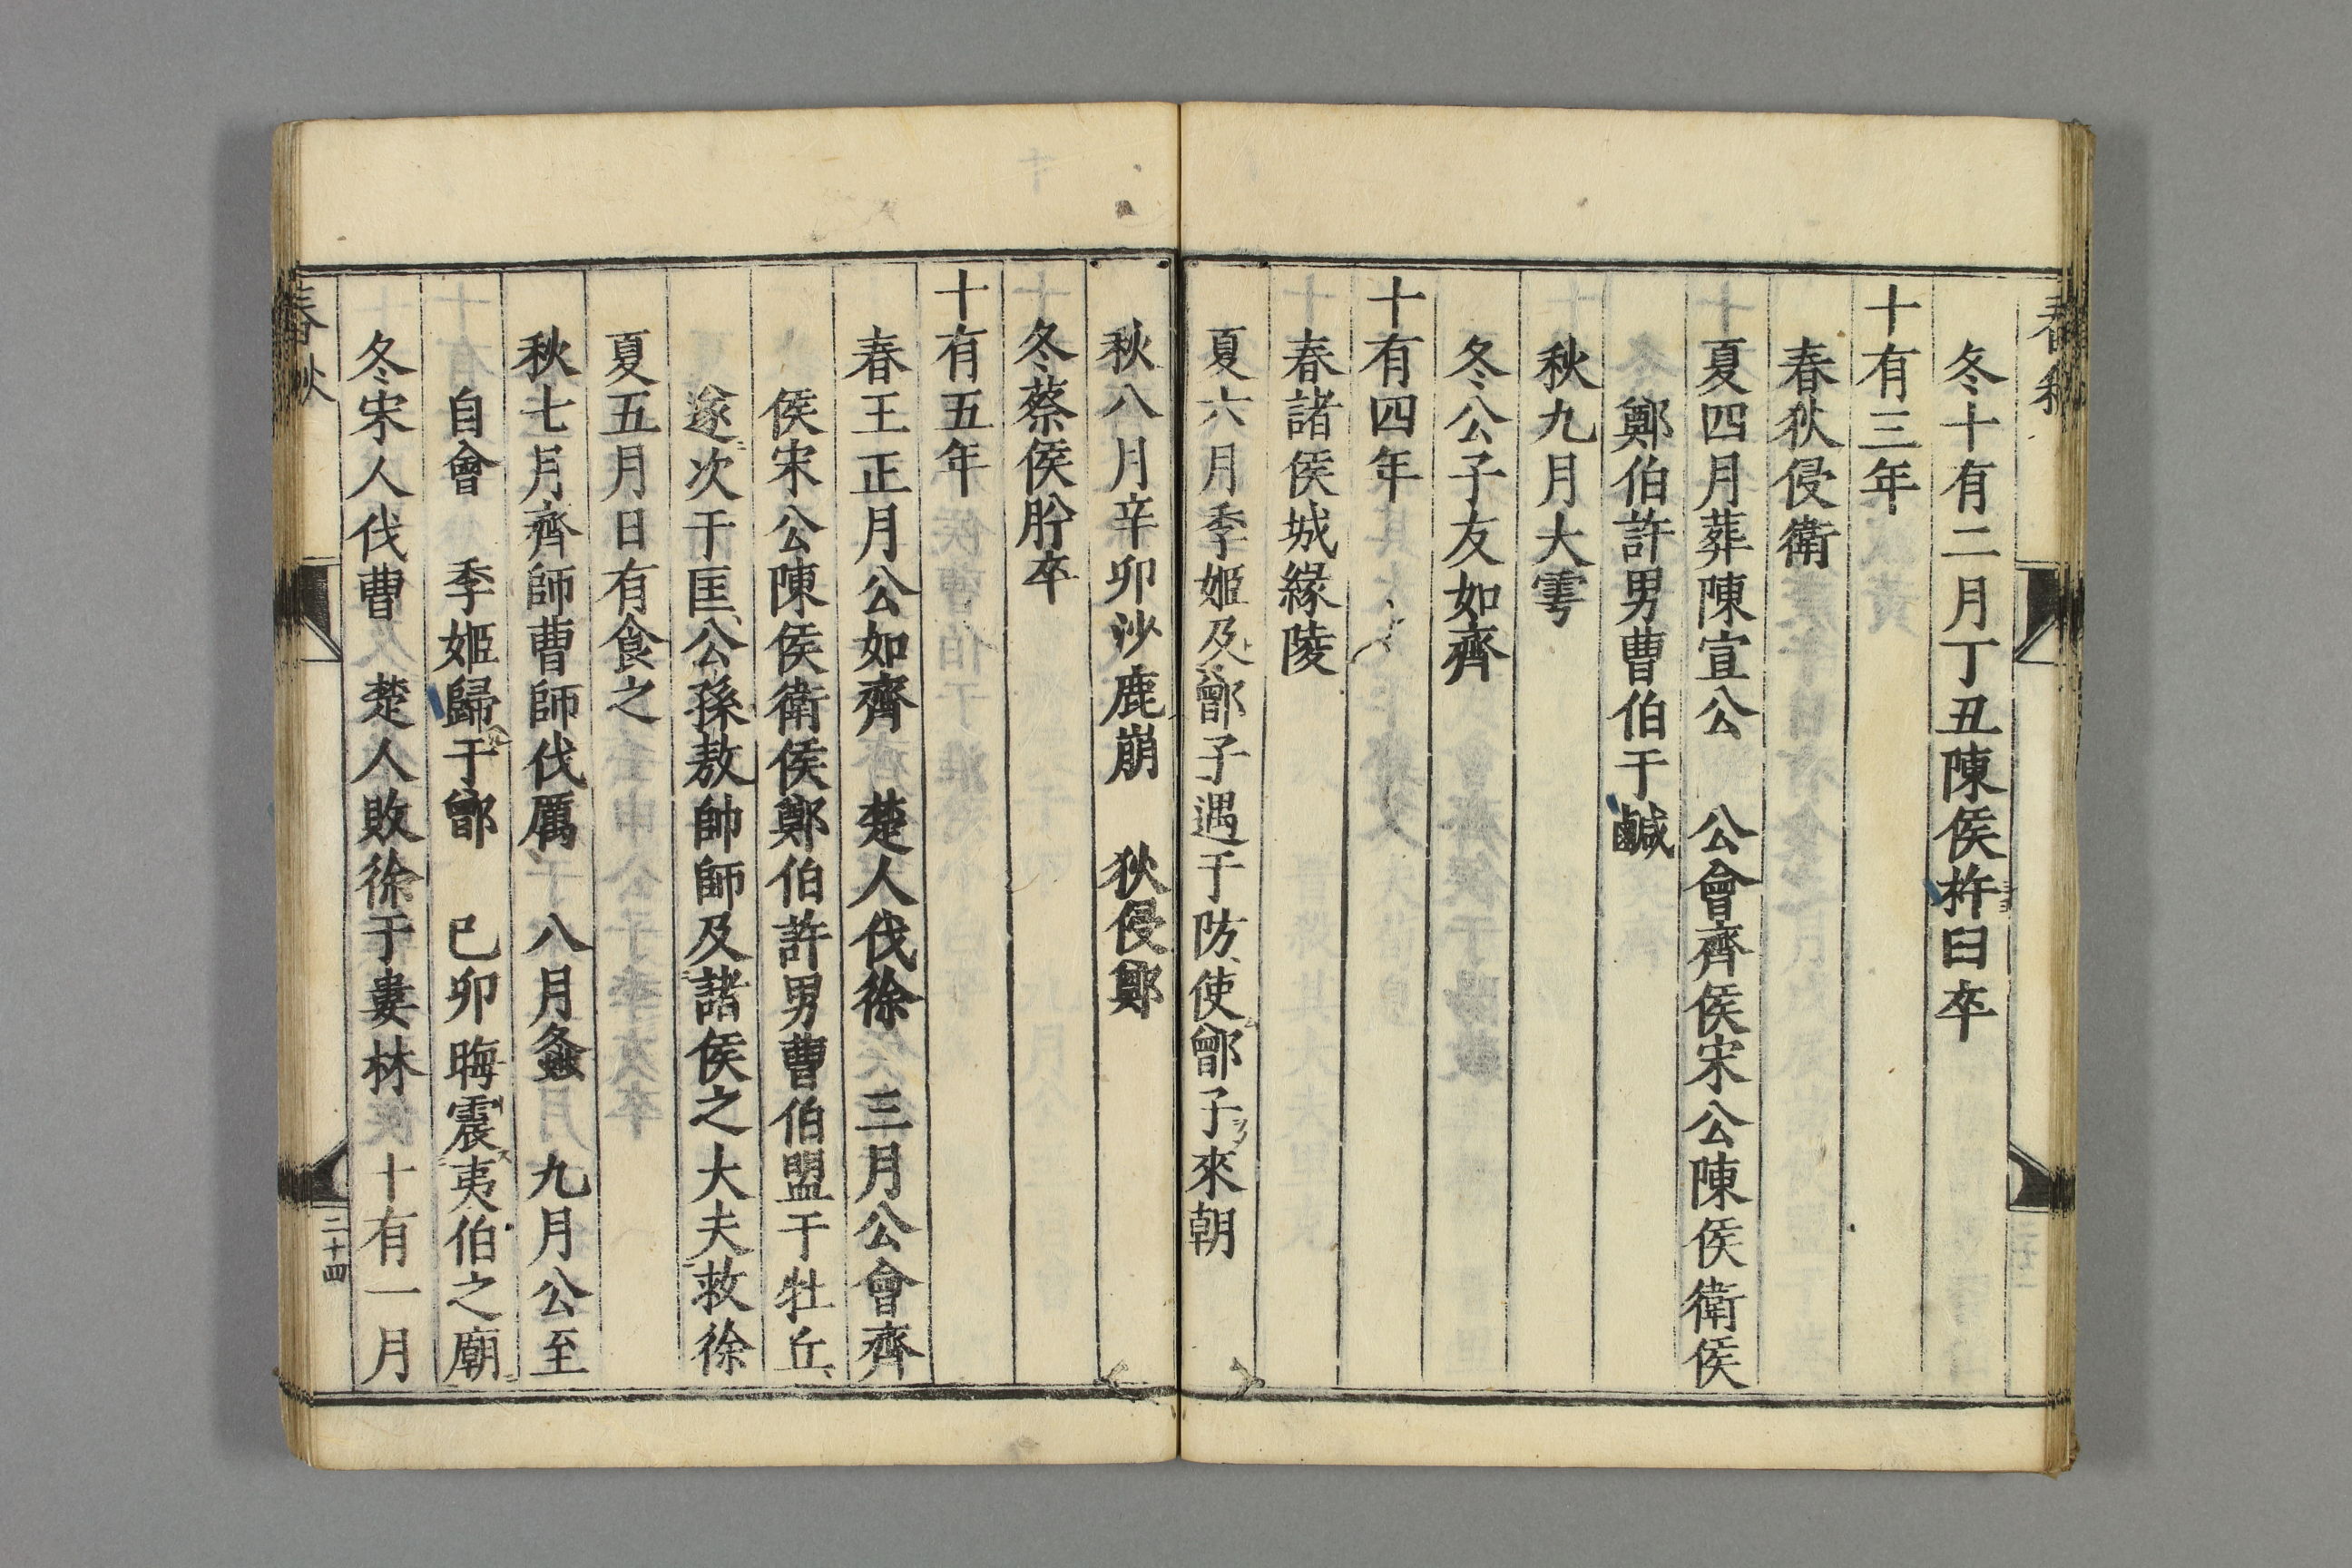 春秋
冬十有二月丁丑陳侯杵臼卒
十有三年
春狄侵衛
夏四月葬陳宣公　公會齊侯宋公陳侯衛侯
鄭伯許男曹伯于鹹
秋九月大雩
冬公子友如齊
十有四年
春諸侯城緣陵
夏六月季姬及鄫子遇于防使鄫子來朝
秋八月辛卯沙鹿崩　狄侵鄭
冬蔡侯肹卒
十有五年
春王正月公如齊　楚人伐徐　三月公會齊
侯宋公陳侯衛侯鄭伯許男曹伯盟于牡丘
遂次于匡公孫敖帥師及諸侯之大夫救徐
夏五月日有食之
秋七月齊師曹師伐厲　八月螽　九月公至
自會　季姬歸于鄫　已卯晦震夷伯之廟
冬宋人伐曹　楚人敗徐于婁林　十有一月
春秋
二十四